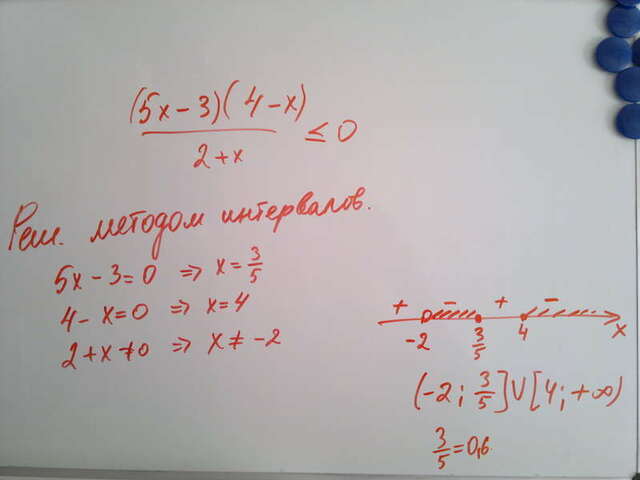 (5x-3)(4-x)
2+x
≤ 0
Реш. методом интервалов.
5x-3=0 ⇒ x=3/5
4-x=0 ⇒ x=4
2+x≠0 ⇒ x≠-2
+ - + -
-2 3/5 4 x
(-2; 3/5]∪[4; +∞)
3/5=0,6